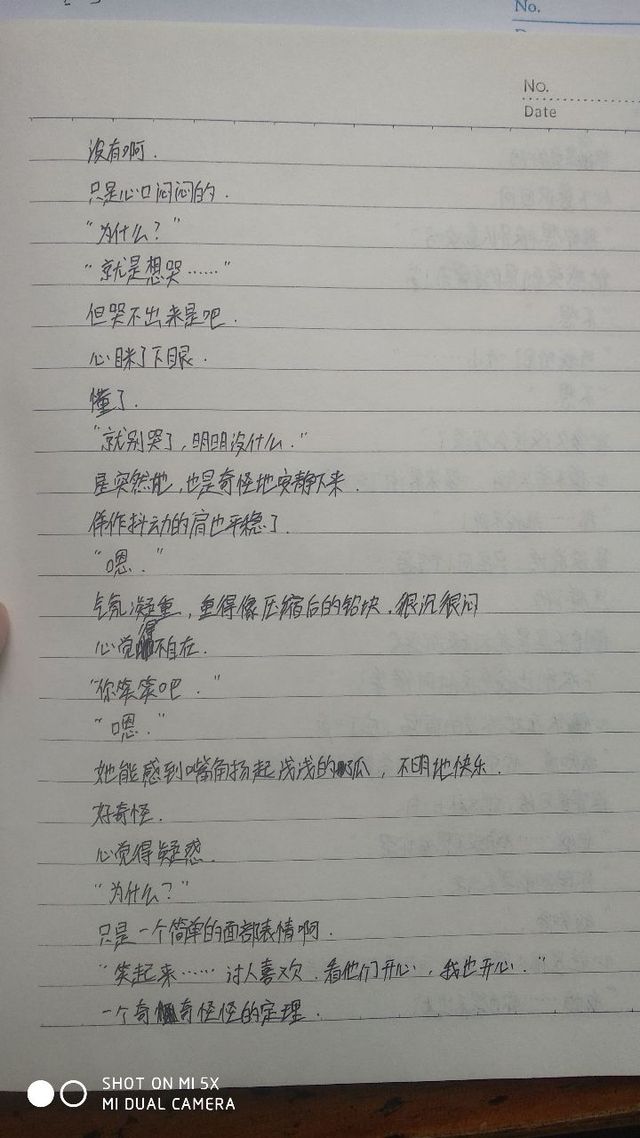 No.
No.
Date
没有啊.
只是心口闷闷的.
"为什么？"
"就是想哭……"
但哭不出来是吧.
心眯了下眼.
懂了.
"就别哭了,明明没什么."
是突然地,也是奇怪地安静下来.
佯作抖动的肩也平稳了.
"嗯."
气氛凝重,重得像压缩后的铅块.很沉很闷
心觉得不自在.
"你笑笑吧."
"嗯."
她能感到嘴角扬起浅浅的弧,不明地快乐.
好奇怪.
心觉得疑惑.
"为什么？"
只是一个简单的面部表情啊.
"笑起来……讨人喜欢.看他们开心,我也开心."
一个奇奇怪怪的定理.
SHOT ON MI 5X
MI DUAL CAMERA